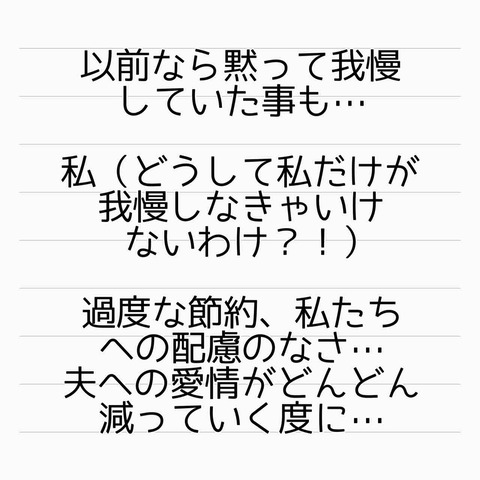 以前なら黙って我慢
していた事も…
私（どうして私だけが
我慢しなきゃいけ
ないわけ？！）
過度な節約、私たち
への配慮のなさ…
夫への愛情がどんどん
減っていく度に…